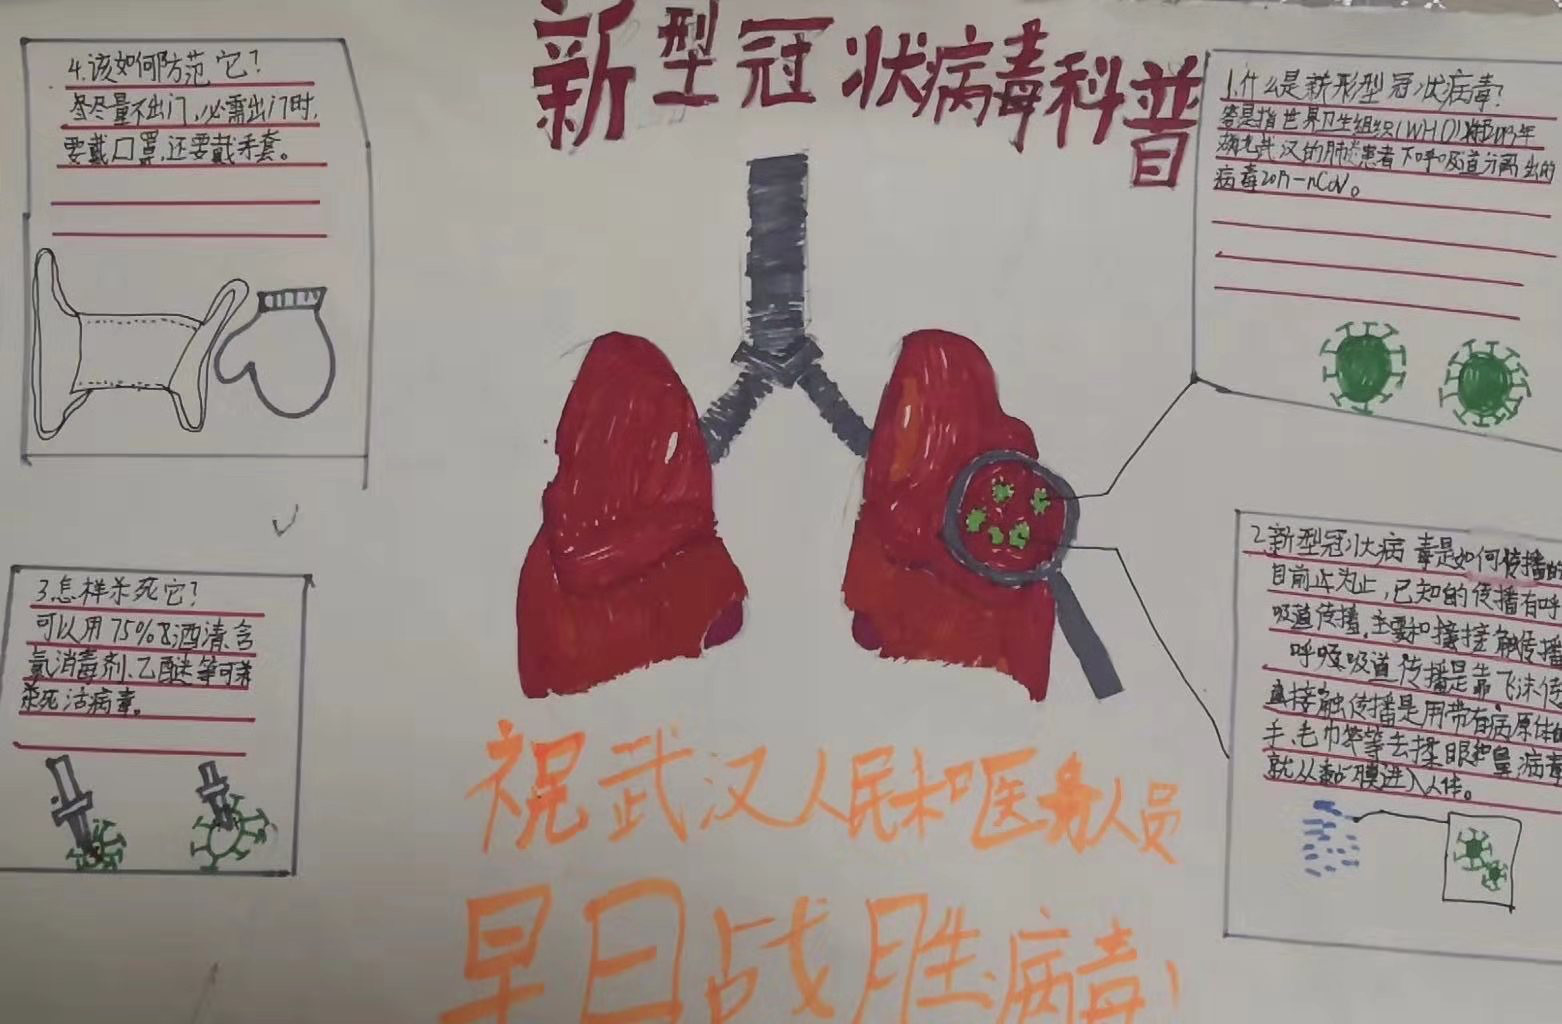 新型冠状病毒科普
1.什么是新形型冠状病毒?
是指世界卫生组织(WHO)
武汉的肺炎患者下呼吸道分离出的
病毒2019-nCoV。
2.新型冠状病毒是如何传播的
目前止为止,已知的传播有呼
吸道传播,主要和接触传播
呼吸道传播是靠飞沫传
直接触传播是用带有病原体的
手、毛巾等去揉眼和鼻,病毒
就从黏膜进入人体。
3.怎样杀死它?
可以用75%酒清,含
氯消毒剂、乙醚等可
杀死活病毒。
4.该如何防范它?
尽量不出门,必需出门时,
要戴口罩,还要戴手套。
祝武汉人民和医务人员
早日战胜病毒!